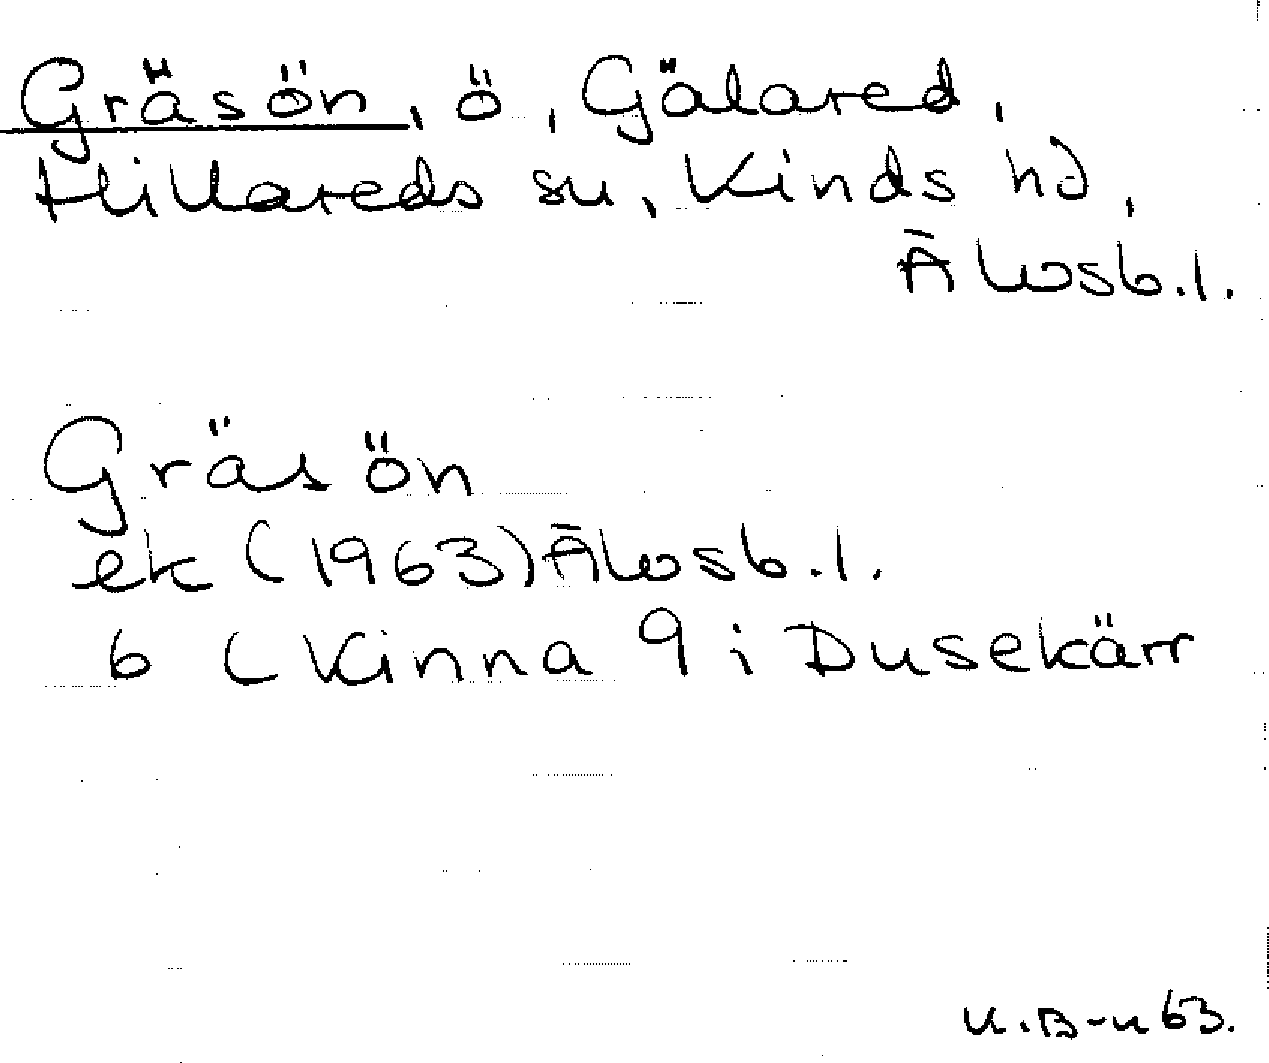 Gräsön, ö, Gälared,
Hillareds sn, Kinds hd,
Älvsb.l.
Gräsön
ek (1963) Älvsb.l.
6 ( Kinna 9 i Dusekärr
63.